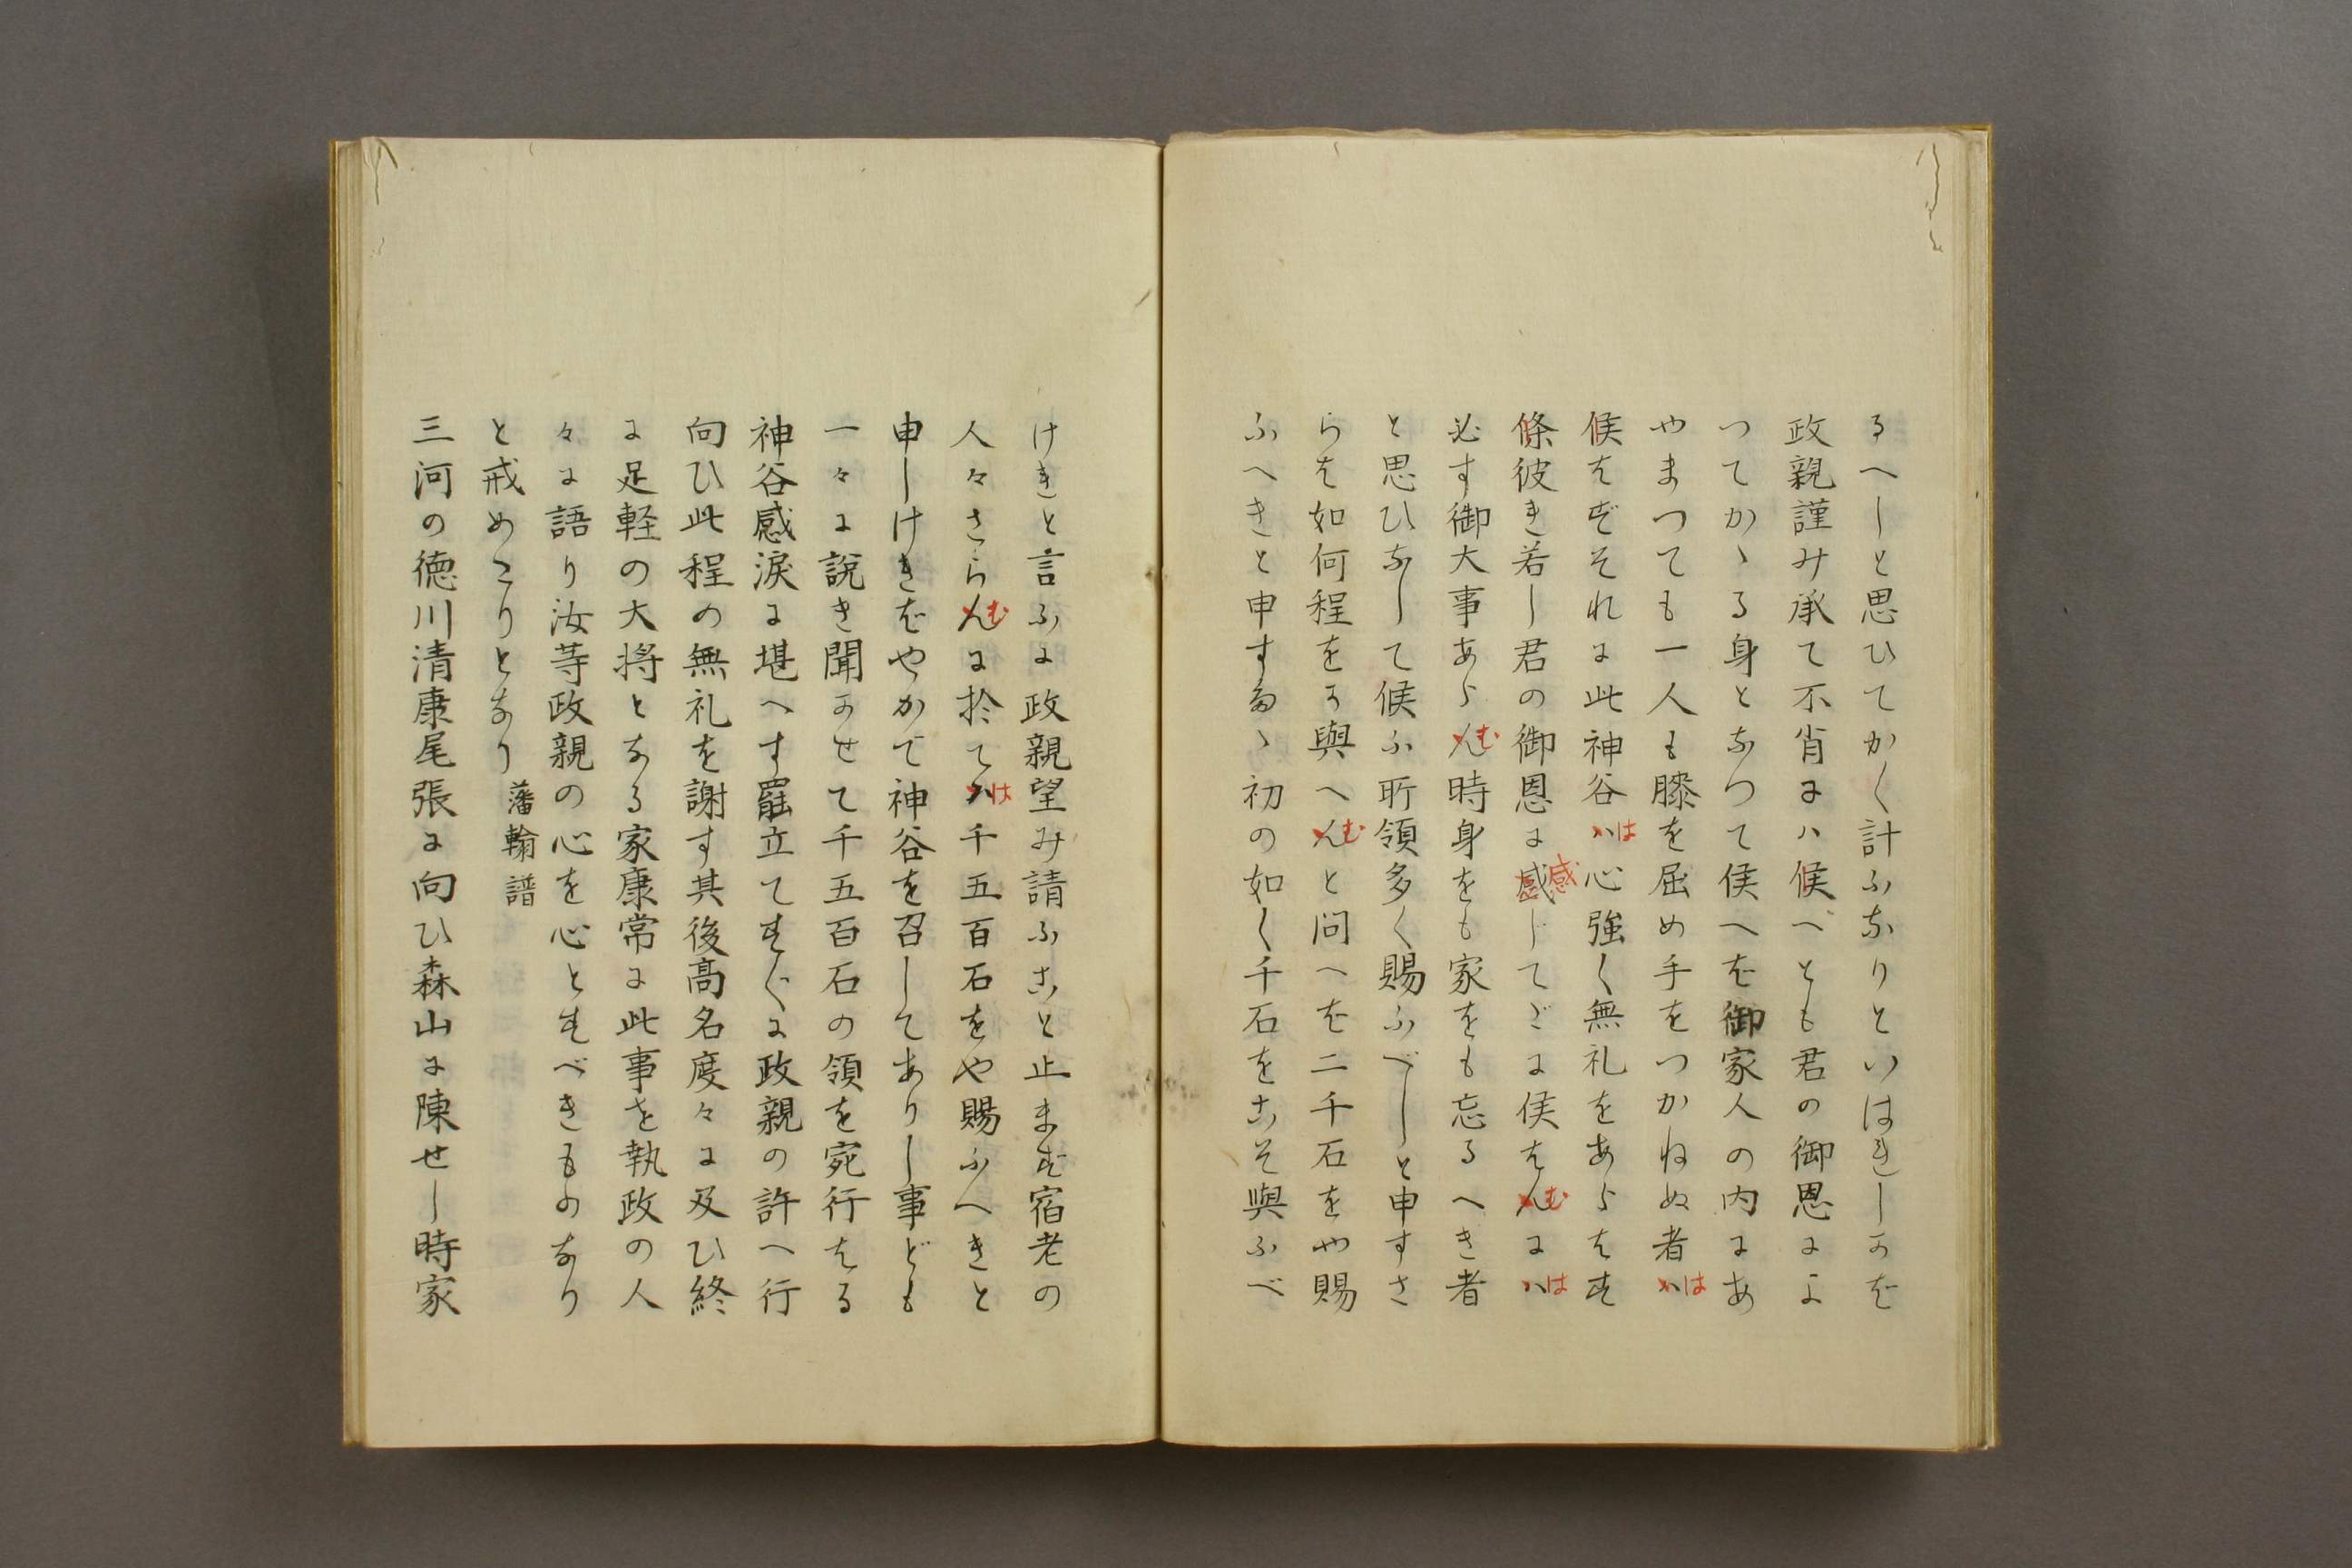 るへしと思ひてかく計ふなりといはれしかを
政親謹み承て不肖にハ候べとも君の御恩によ
つてかゝる身となつて侯へを御家人の内にあ
やまつても一人も膝を屈め手をつかねぬ者ハは
候はずそれに此神谷ハは心強く無礼をあらはす
條彼き若し君の御恩に感感じてだに侯はんむにハは
必す御大事あらんむ時身をも家をも忘るへき者
と思ひなして候ふ所領多く賜ふべしと申すさ
らは如何程をか與へんむと問へを二千石をや賜
ふへきと申すなゝ初の如く千石をこそ與ふべ
けきと言ふに政親望み請ふこと止まず宿老の
人々さらんむに於てハは千五百石をや賜ふへきと
申しけきをやかて神谷を召してありし事ども
一々に説き聞かせて千五百石の領を宛行はる
神谷感涙に堪へす罷立てすぐに政親の許へ行
向ひ此程の無礼を謝す其後高名度々に及ひ終
に足軽の大将となる家康常に此事を執政の人
々に語り汝等政親の心を心とすべきものなり
と戒めこりとなり 藩輸譜
三河の徳川清康尾張に向ひ森山に陳せし時家